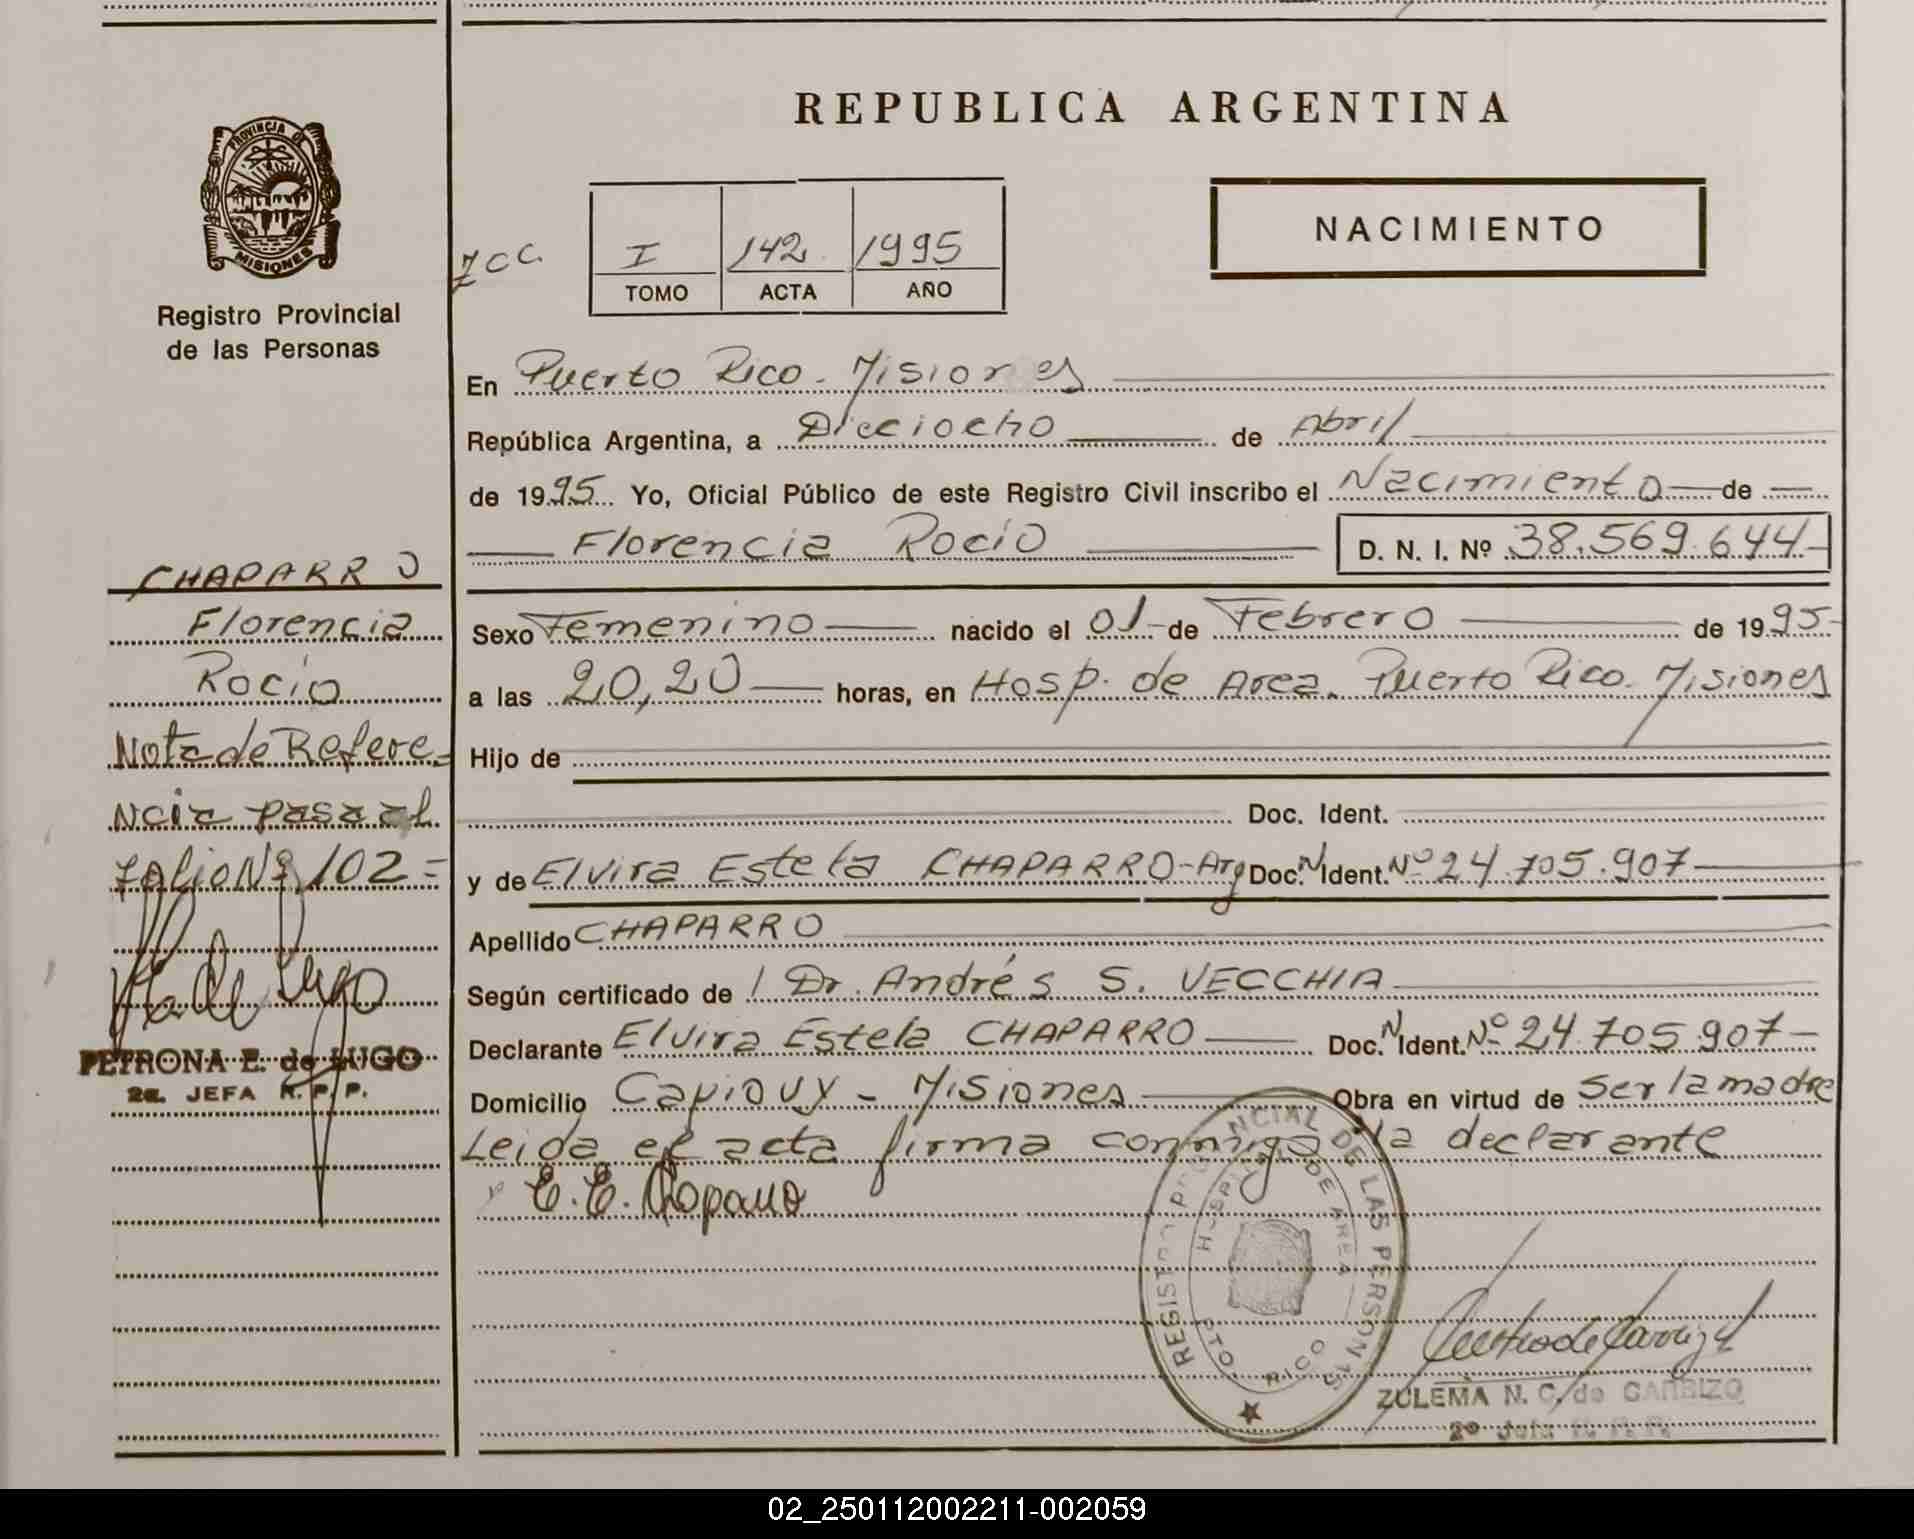 REPUBLICA ARGENTINA
PROVINCIA DE
MISIONES
Registro Provincial
de las Personas
NACIMIENTO
I 142 1995
TOMO ACTA AÑO
En Puerto Rico - Misiones
República Argentina, a Dieciocho de Abril
de 1995 Yo, Oficial Público de este Registro Civil inscribo el Nacimiento de
Florencia Rocío D. N. I. Nº 38.569.644
Sexo Femenino nacido el 01 de Febrero de 1995
a las 20,20 horas, en Hosp. de Area. Puerto Rico. Misiones
Hijo de
Doc. Ident.
y de Elvira Estela CHAPARRO - Arg Doc. N. Ident. Nº 24.705.907
Apellido CHAPARRO
Según certificado de Dr. Andrés S. VECCHIA
Declarante Elvira Estela CHAPARRO Doc. N. Ident. Nº 24.705.907
Domicilio Capiovy - Misiones Obra en virtud de Ser la madre
Leida el acta firma conmigo la declarante
CHAPARRO
Florencia
Rocío
Nota de Refere-
ncia pasa al
folio Nº 102 =
PETRONA E. de LUGO
2a. JEFA R. P. P.
REGISTRO PROVINCIAL DE LAS PERSONAS
HOSPITAL DE AREA
PTO. RICO
ZULEMA N. C. de CARRIZO
02_250112002211-002059